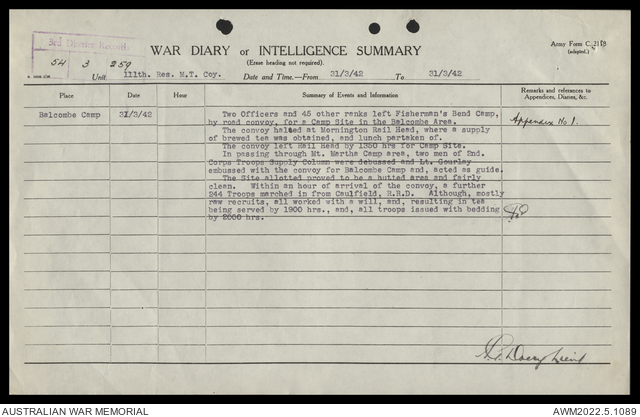 3rd Division Records
WAR DIARY or INTELLIGENCE SUMMARY
Army Form C. 2118
(adapted.)
(Erase heading not required).
54 3 259
Unit 111th. Res. M.T. Coy. Date and Time.—From 31/3/42 To 31/3/42
Place Date Hour Summary of Events and Information Remarks and references to Appendices, Diaries, &c.
Balcombe Camp 31/3/42 Two Officers and 45 other ranks left Fisherman's Bend Camp, Appendix No 1.
by road convoy, for a Camp Site in the Balcombe Area.
The convoy halted at Mornington Rail Head, where a supply
of brewed tea was obtained, and lunch partaken of.
The convoy left Rail Head by 1350 hrs for Camp Site.
In passing through Mt. Martha Camp area, two men of 2nd.
Corps Troops Supply Column were debussed and Lt. Gourlay
embussed with the convoy for Balcombe Camp and, acted as guide.
The Site allotted proved to be a hutted area and fairly
clean. Within an hour of arrival of the convoy, a further
244 Troops marched in from Caulfield, R.R.D. Although, mostly
raw recruits, all worked with a will, and, resulting in tea
being served by 1900 hrs., and, all troops issued with bedding
by 2000 hrs.
Lieut
AUSTRALIAN WAR MEMORIAL AWM2022.5.1089